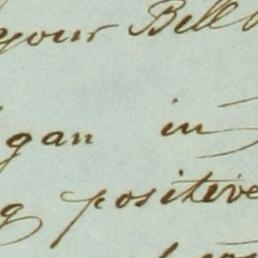 your Bell
gan in
g positive